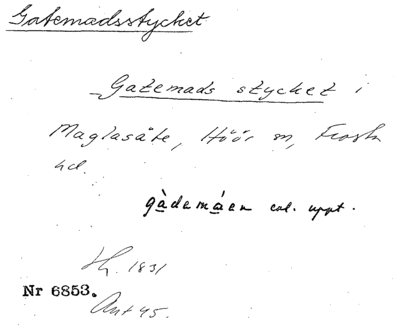 Gatemadsstycket
Gatemads stycket i
Maglasäte, Höör sn, Frosta
hd.
gàdemáen enl. uppt.
Hy. 1831
Nr 6853.
Ant 45.